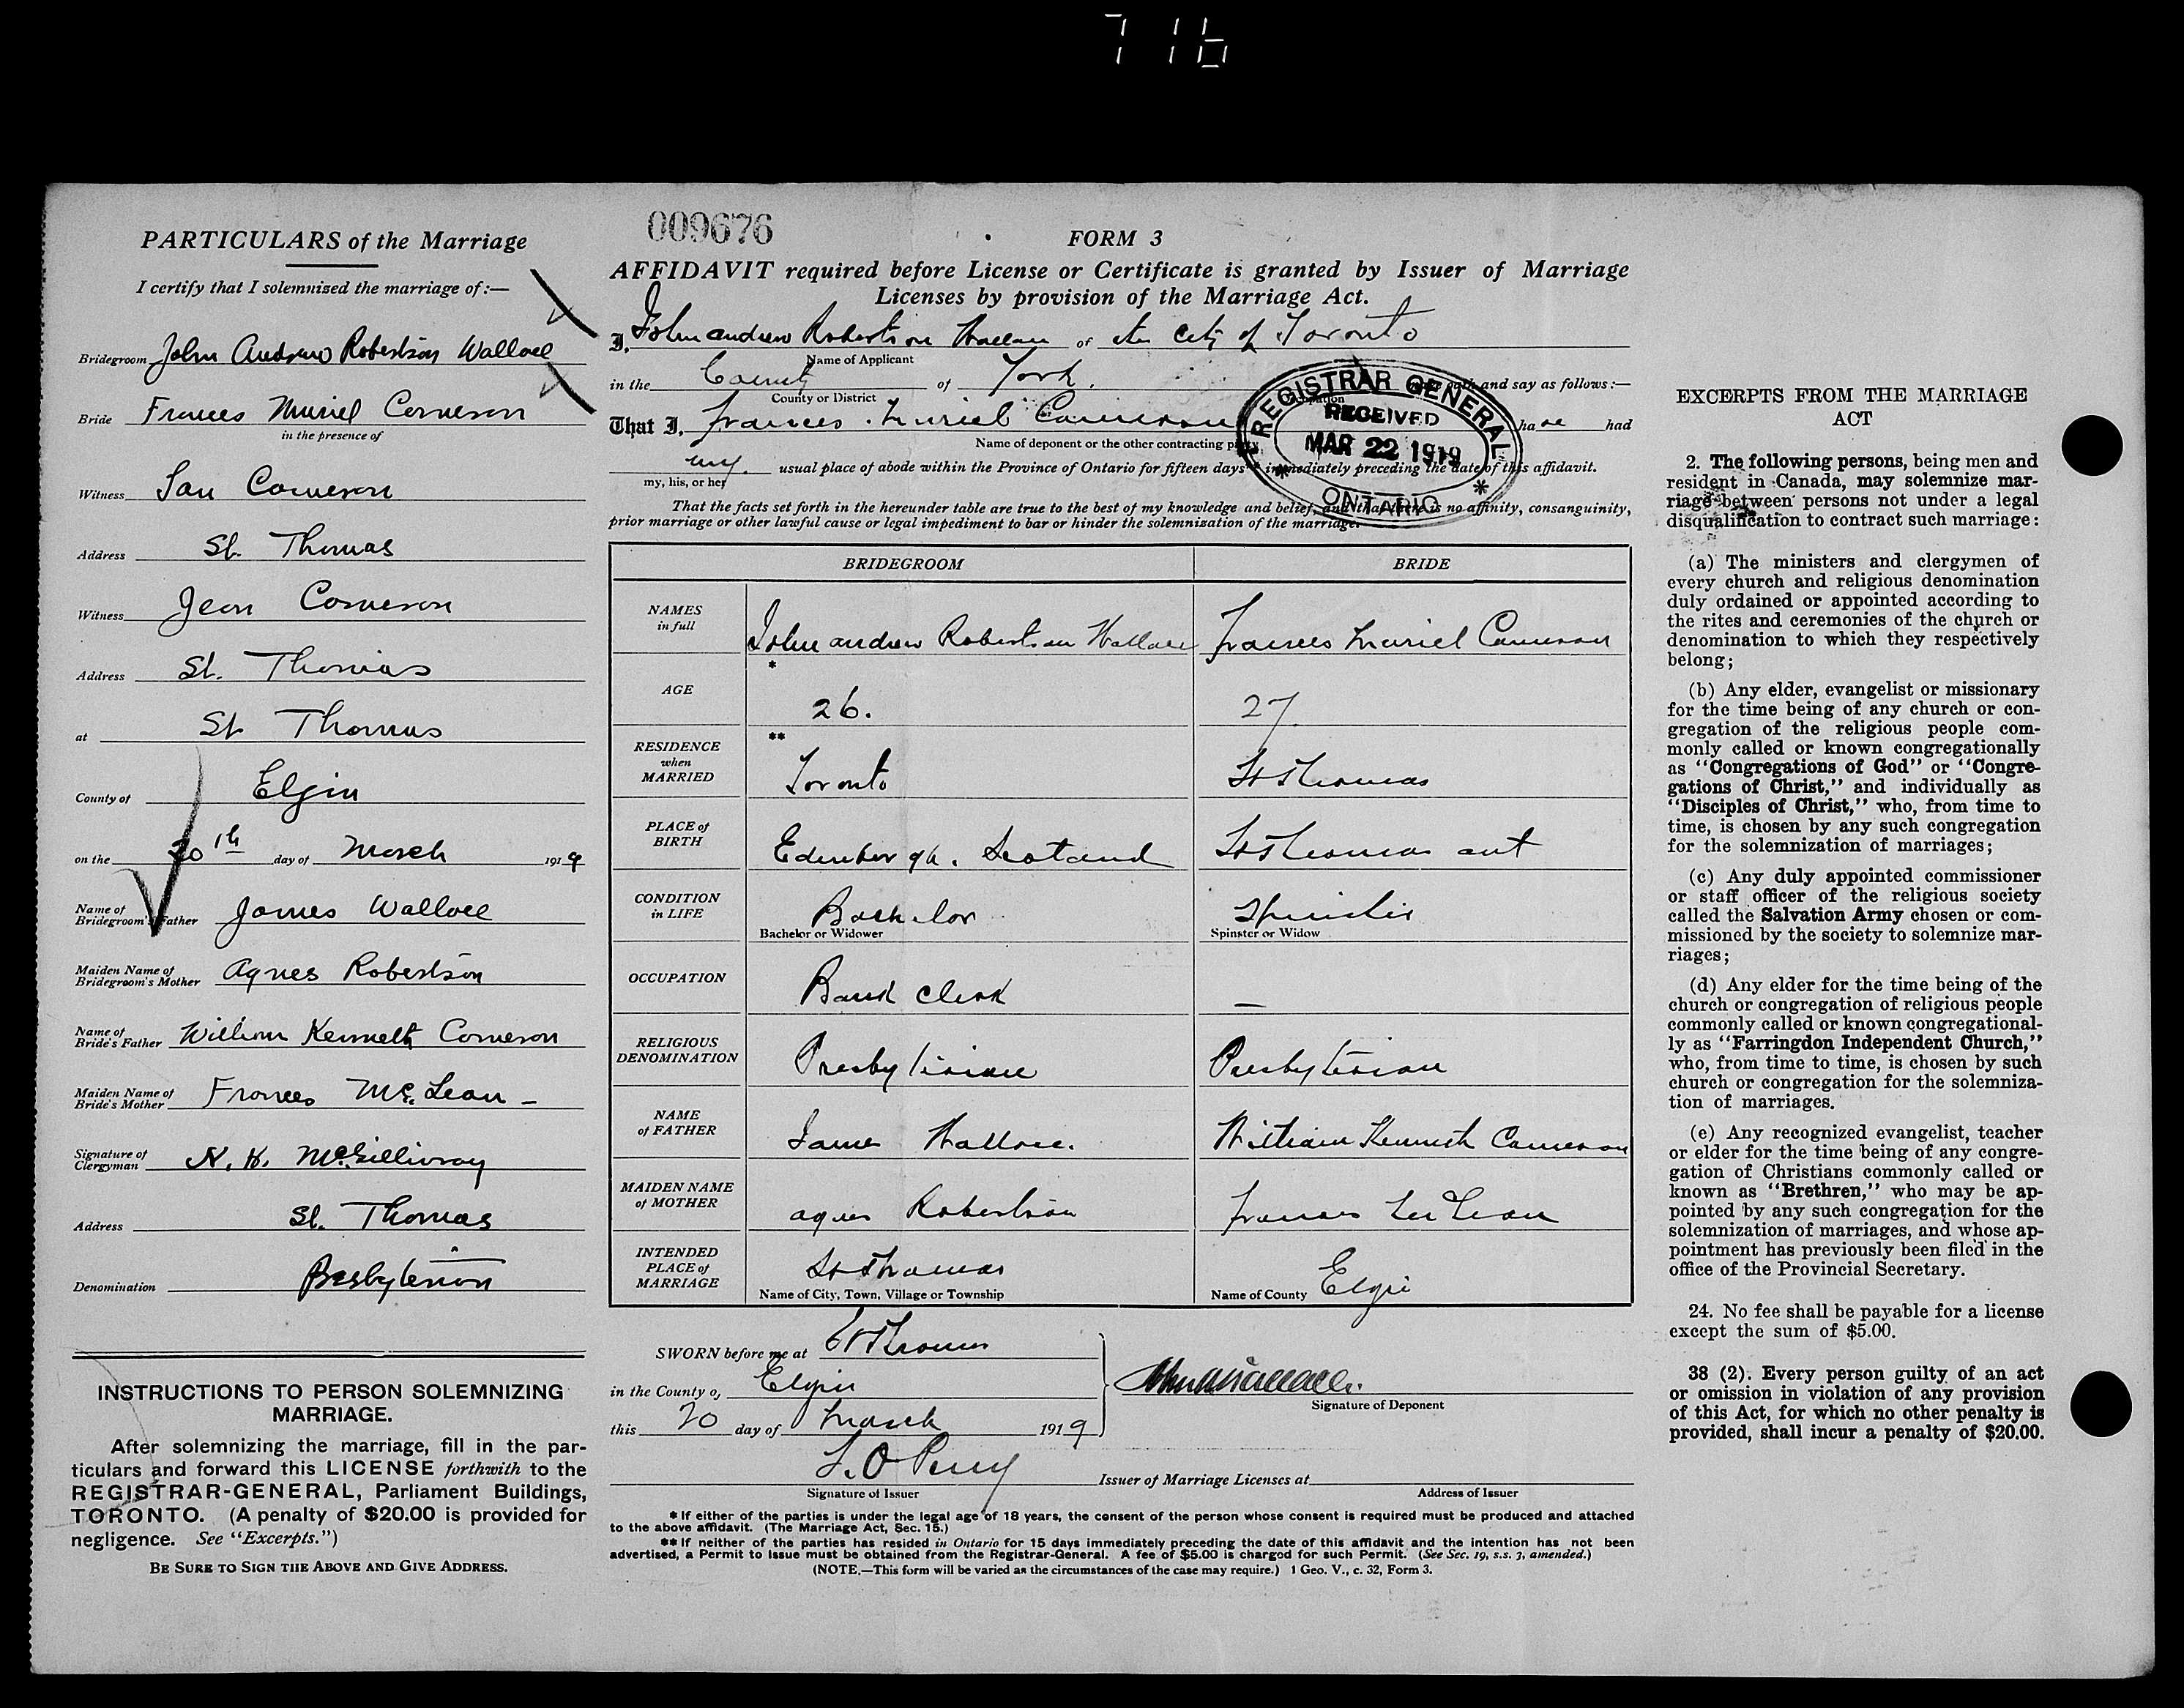 716
PARTICULARS of the Marriage
I certify that I solemnized the marriage of:—
Bridegroom John Andrew Robertson Wallace
Bride Frances Muriel Cameron
in the presence of
Witness Ian Cameron
Address St. Thomas
Witness Jean Cameron
Address St. Thomas
at St Thomas
County of Elgin
on the 20th day of March 1919
Name of Bridegroom's Father James Wallace
Maiden Name of Bridegroom's Mother Agnes Robertson
Name of Bride's Father William Kenneth Cameron
Maiden Name of Bride's Mother Frances McLean -
Signature of Clergyman N. H. McGillivray
Address St. Thomas
Denomination Presbyterian
INSTRUCTIONS TO PERSON SOLEMNIZING
MARRIAGE.
After solemnizing the marriage, fill in the par-
ticulars and forward this LICENSE forthwith to the
REGISTRAR-GENERAL, Parliament Buildings,
TORONTO. (A penalty of $20.00 is provided for
negligence. See "Excerpts.")
BE SURE TO SIGN THE ABOVE AND GIVE ADDRESS.
009676
FORM 3
AFFIDAVIT required before License or Certificate is granted by Issuer of Marriage
Licenses by provision of the Marriage Act.
I, John andrew Robertson Wallace of the City of Toronto
Name of Applicant
in the County of York. and say as follows:—
County or District
That I, Frances Muriel Cameron have had
Name of deponent or the other contracting party
my. usual place of abode within the Province of Ontario for fifteen days** immediately preceding the date of this affidavit.
my, his, or her
REGISTRAR GENERAL
RECEIVED
MAR 22 1919
* ONTARIO *
That the facts set forth in the hereunder table are true to the best of my knowledge and belief, and that there is no affinity, consanguinity,
prior marriage or other lawful cause or legal impediment to bar or hinder the solemnization of the marriage.
BRIDEGROOM BRIDE
NAMES in full John andrew Robertson Wallace Frances Muriel Cameron
*
AGE 26. 27
**
RESIDENCE when MARRIED Toronto St Thomas
PLACE of BIRTH Edinborgh. Scotland St Thomas ont
CONDITION in LIFE Bachelor Spinster
Bachelor or Widower Spinster or Widow
OCCUPATION Bank Clerk —
RELIGIOUS DENOMINATION Presbyterian Presbyterian
NAME of FATHER James Wallace. William Kenneth Cameron
MAIDEN NAME of MOTHER agnes Robertson Frances McLean
INTENDED PLACE of MARRIAGE St Thomas Elgin
Name of City, Town, Village or Township Name of County
SWORN before me at St Thomas
in the County of Elgin
Signature of Deponent
this 20 day of March 1919
F. O Perry Issuer of Marriage Licenses at
Signature of Issuer Address of Issuer
* If either of the parties is under the legal age of 18 years, the consent of the person whose consent is required must be produced and attached
to the above affidavit. (The Marriage Act, Sec. 15.)
** If neither of the parties has resided in Ontario for 15 days immediately preceding the date of this affidavit and the intention has not been
advertised, a Permit to Issue must be obtained from the Registrar-General. A fee of $5.00 is charged for such Permit. (See Sec. 19, s.s. 3, amended.)
(NOTE.—This form will be varied as the circumstances of the case may require.) 1 Geo. V., c. 32, Form 3.
EXCERPTS FROM THE MARRIAGE
ACT
2. The following persons, being men and
resident in Canada, may solemnize mar-
riage between persons not under a legal
disqualification to contract such marriage:
(a) The ministers and clergymen of
every church and religious denomination
duly ordained or appointed according to
the rites and ceremonies of the church or
denomination to which they respectively
belong;
(b) Any elder, evangelist or missionary
for the time being of any church or con-
gregation of the religious people com-
monly called or known congregationally
as "Congregations of God" or "Congre-
gations of Christ," and individually as
"Disciples of Christ," who, from time to
time, is chosen by any such congregation
for the solemnization of marriages;
(c) Any duly appointed commissioner
or staff officer of the religious society
called the Salvation Army chosen or com-
missioned by the society to solemnize mar-
riages;
(d) Any elder for the time being of the
church or congregation of religious people
commonly called or known congregational-
ly as "Farringdon Independent Church,"
who, from time to time, is chosen by such
church or congregation for the solemniza-
tion of marriages.
(e) Any recognized evangelist, teacher
or elder for the time being of any congre-
gation of Christians commonly called or
known as "Brethren," who may be ap-
pointed by any such congregation for the
solemnization of marriages, and whose ap-
pointment has previously been filed in the
office of the Provincial Secretary.
24. No fee shall be payable for a license
except the sum of $5.00.
38 (2). Every person guilty of an act
or omission in violation of any provision
of this Act, for which no other penalty is
provided, shall incur a penalty of $20.00.